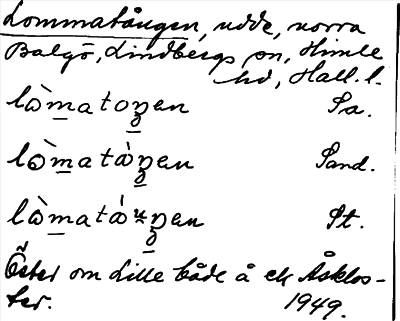 Lommatången, udde, norra
Balgö, Lindbergs sn, Himle
hd, Hall. l.
lò̀m̲atoŋ̲en Sa.
lò̀m̲atàŋ̲en Sand.
lò̀m̲atáŋ̲en St.
Öster om Lille både å ek Åsklos-
ter. 1949.